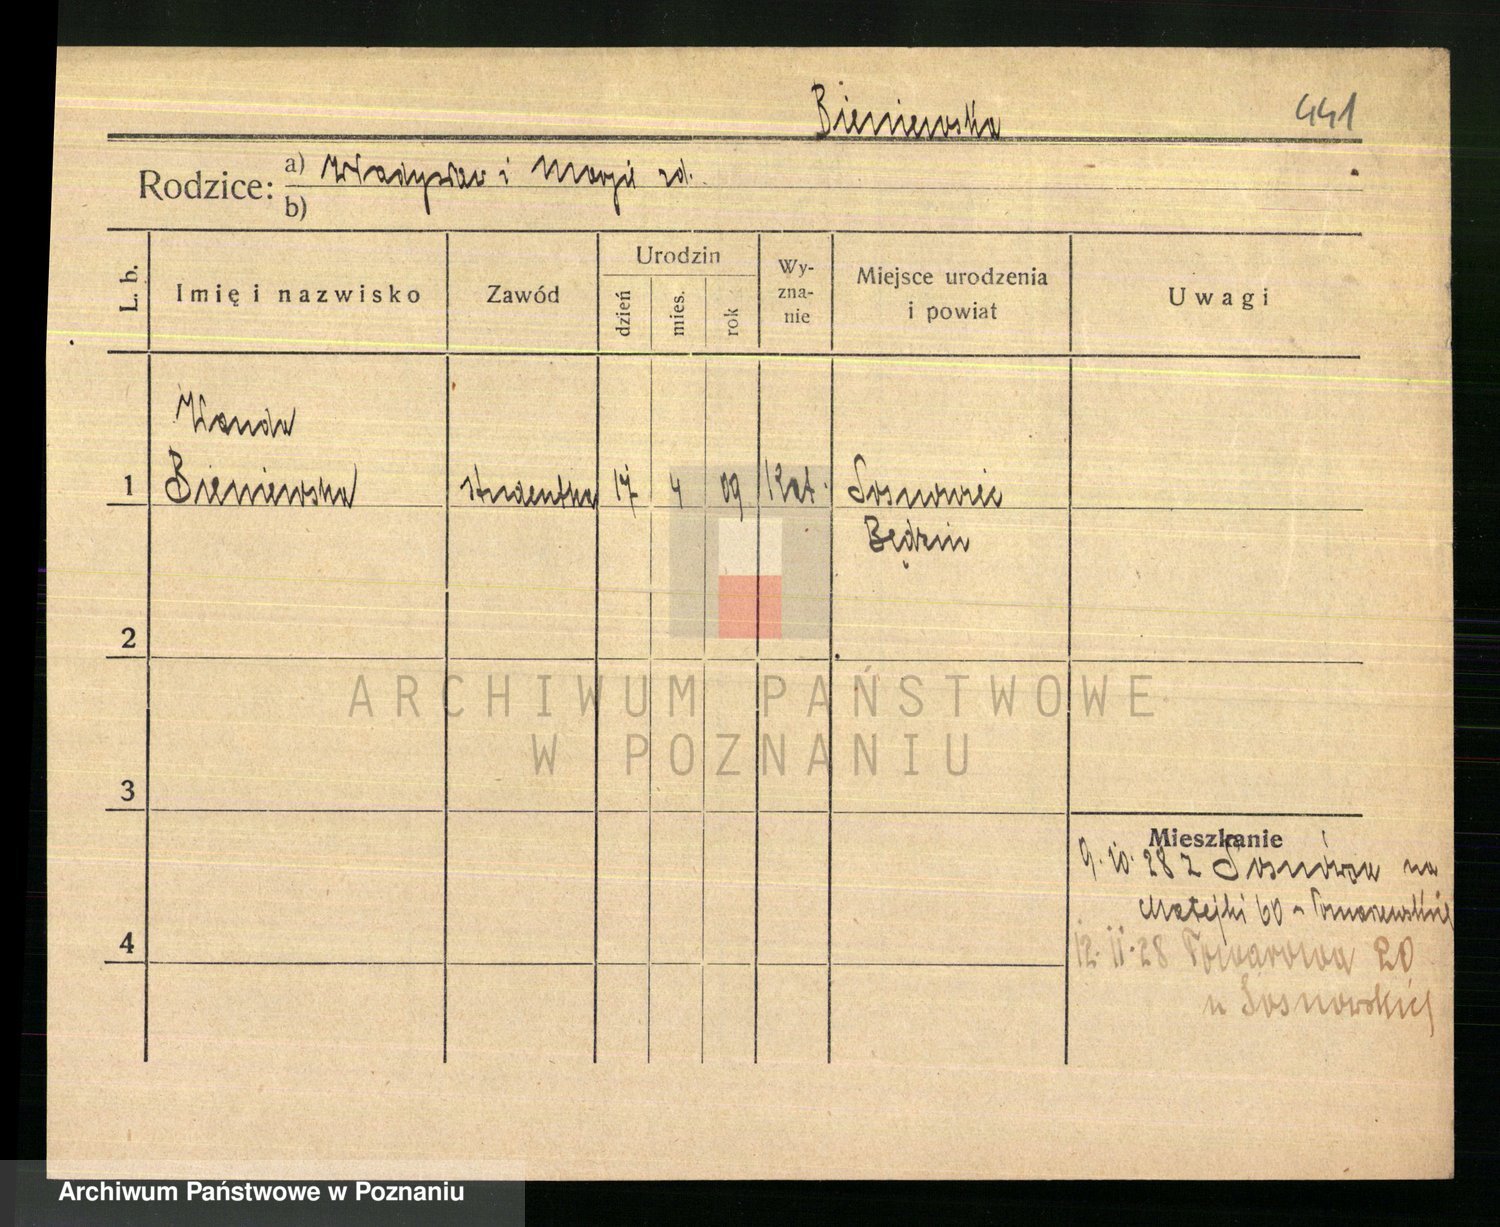 Bieniewska 441
Rodzice: a) Władysław i Marja zd.
b)
L. b. Imię i nazwisko Zawód Urodzin dzień mies. rok Wy-zna-nie Miejsce urodzenia i powiat Uwagi
Wanda
1 Bieniewska studentka 17 4 09 Kat. Sosnowiec
Będzin
2
ARCHIWUM PAŃSTWOWE
W POZNANIU
3
Mieszkanie
9.10.28 z Sosnowca na
Matejki 60
4 12.11.28 Towarowa 20
u Sosnowskiej
Archiwum Państwowe w Poznaniu